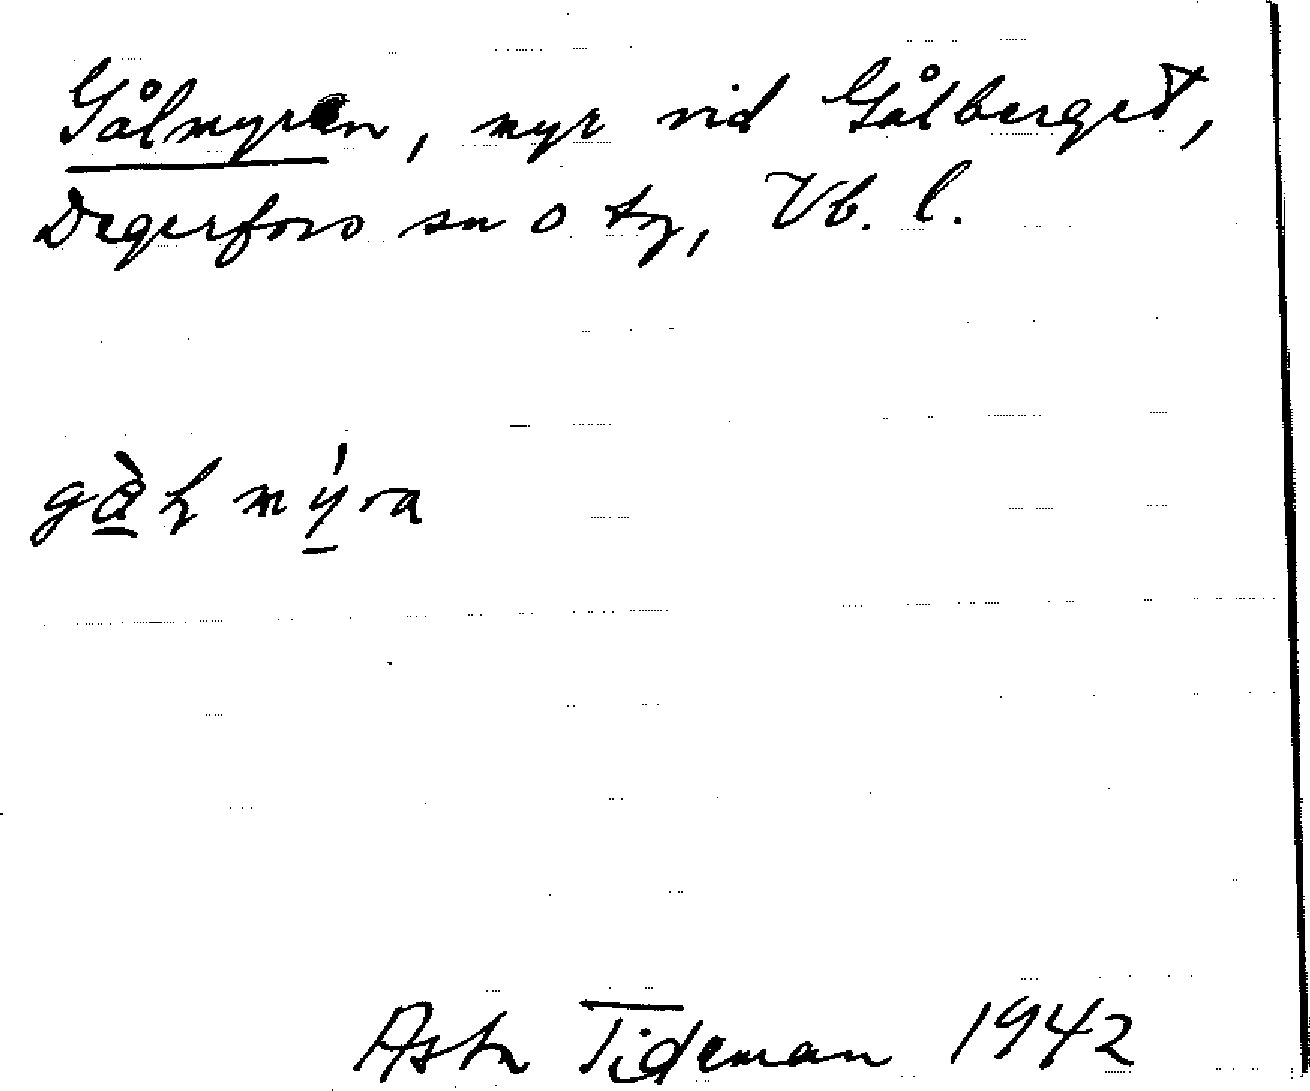 Gålmyren, myr vid Gålberget,
Degerfors sn o tg, Vb. l.
mýra
Tideman 1942